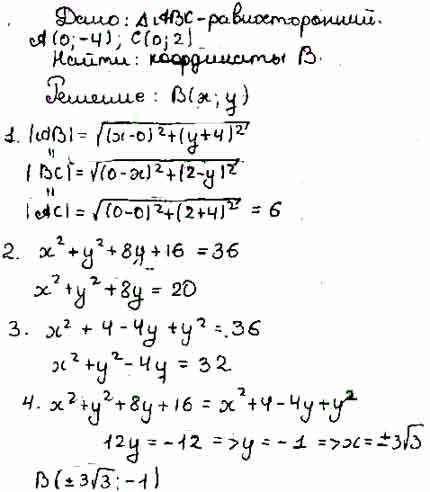 Дано: △ABC - равносторонний.
A(0;-4); C(0;2)
Найти: координаты B.
Решение: B(x;y)
1. |AB| = √((x-0)²+(y+4)²)
"
|BC| = √((0-x)²+(2-y)²)
"
|AC| = √((0-0)²+(2+4)²) = 6
2. x²+y²+8y+16 = 36
x²+y²+8y = 20
3. x²+4-4y+y² = 36
x²+y²-4y = 32
4. x²+y²+8y+16 = x²+4-4y+y²
12y = -12 => y = -1 => x = ±3√3
B(±3√3; -1)